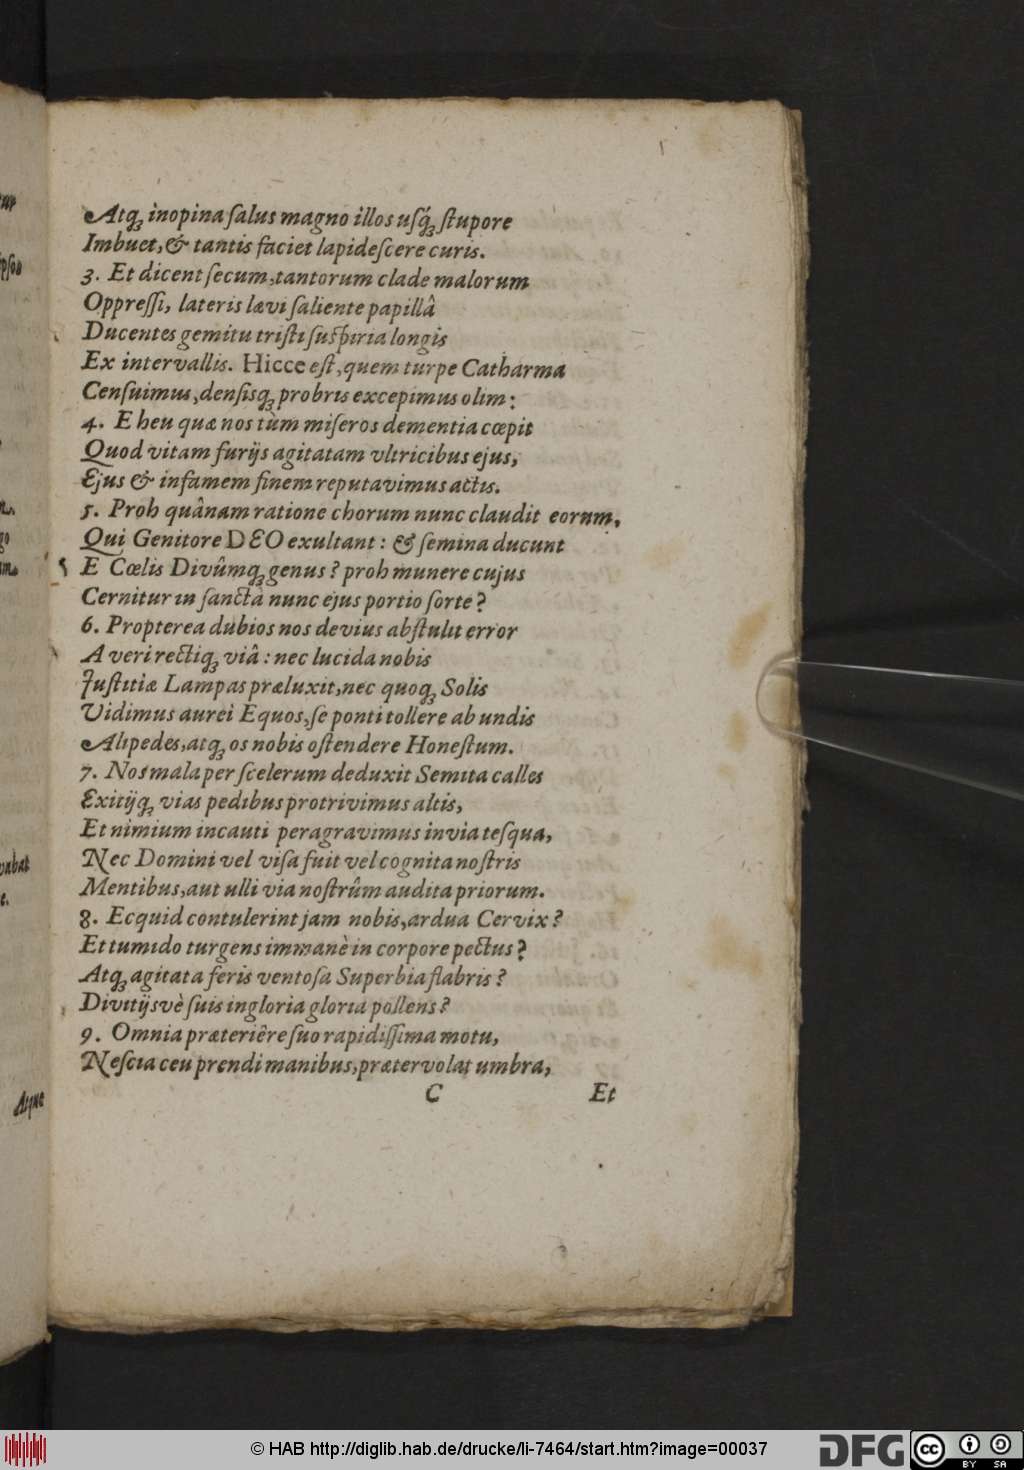 Atq́ꝫ inopina ſalus magno illos uſq́ꝫ ſtupore
Imbuet, & tantis faciet lapideſcere curis.
3. Et dicent ſecum, tantorum clade malorum
Oppreſſi, lateris lævi ſaliente papillâ
Ducentes gemitu triſti ſuſpiria longis
Ex intervallis. Hicce eſt, quem turpe Catharma
Cenſuimus, denſisqꝫ probris excepimus olim:
4. E heu quæ nos tùm miſeros dementia cœpit
Quod vitam furijs agitatam vltricibus ejus,
Ejus & infamem finem reputavimus actis.
5. Proh quânam ratione chorum nunc claudit eorum,
Qui Genitore DEO exultant: & ſemina ducunt
E Cœlis Divûmqꝫ genus? proh munere cujus
Cernitur in ſanctâ nunc ejus portio ſorte?
6. Propterea dubios nos devius abſtulit error
A veri rectiqꝫ viâ: nec lucida nobis
Juſtitiæ Lampas præluxit, nec quoqꝫ Solis
Vidimus aurei Equos, ſe ponti tollere ab undis
Alipedes, atqꝫ os nobis oſtendere Honeſtum.
7. Nos mala per ſcelerum deduxit Semita calles
Exitijqꝫ vias pedibus protrivimus altis,
Et nimium incauti peragravimus invia teſqua,
Nec Domini vel viſa fuit vel cognita noſtris
Mentibus, aut ulli via noſtrûm audita priorum.
8. Ecquid contulerint jam nobis, ardua Cervix?
Et tumido turgens immanè in corpore pectus?
Atqꝫ agitata feris ventoſa Superbia flabris?
Divitijsvè ſuis ingloria gloria pollens?
9. Omnia præteriêre ſuo rapidiſſima motu,
Neſcia ceu prendi manibus, prætervolat umbra,
C Et
Atque
© HAB http://diglib.hab.de/drucke/li-7464/start.htm?image=00037
DFG cc BY SA